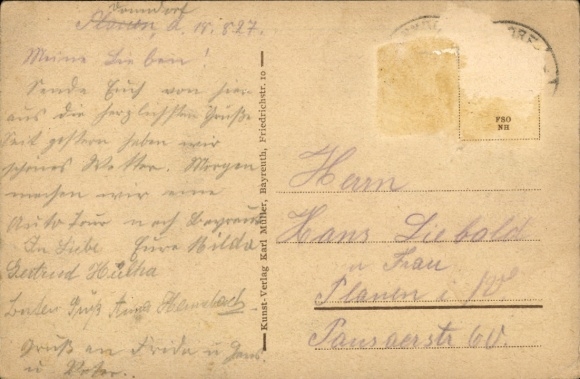 Donndorf
d. 18. 8. 27.
Meine Lieben!
Sende Euch von hier
aus die herzlichsten Grüße
Seit gestern haben wir
schönes Wetter. Morgen
machen wir eine
Auto Tour nach Bayreuth
In Liebe Eure Hilda
Gertrud
Gruß Anna
Gruß an Frida u Hans
u Peter.
Kunst-Verlag Karl Müller, Bayreuth, Friedrichstr. 10
FSO
NH
Herrn
Hans Liebold
u Frau
Plauen i/V
Pausaerstr 60.